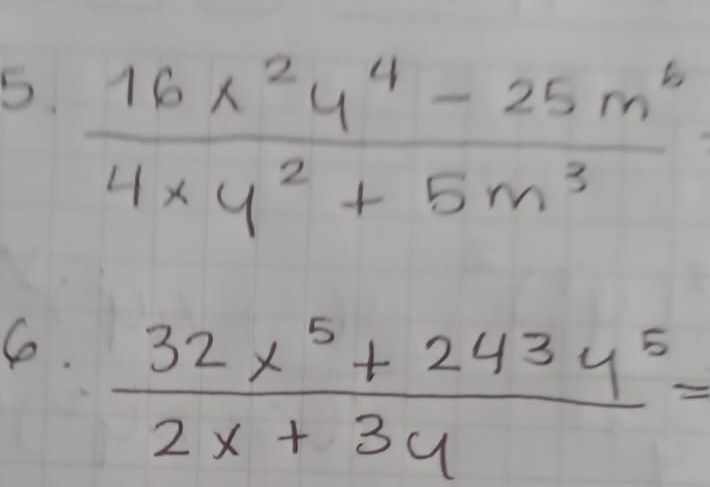 5. 16x²y⁴ - 25m⁶
4xy² + 5m³
6. 32x⁵ + 243y⁵ =
2x + 3y